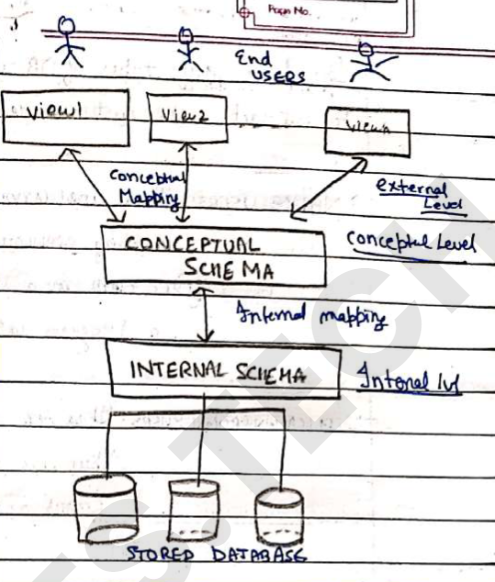 Page No.
End
USERS
View1
View2
View n
Conceptual
Mapping
External
Level
CONCEPTUAL
SCHEMA
Conceptul Level
Internal mapping
INTERNAL SCHEMA
Internal lvl
STORED DATABASE